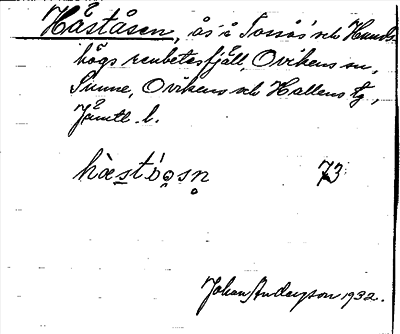 Håståsen, ås å Tossås' och Hunds-
högs renbetesfjäll, Ovikens sn,
Sunne, Ovikens och Hallens tg,
Jämtl. l.
73
Johan Anderzon 1932.